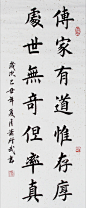 傳家有道惟存厚
處世無奇但率真
歲次乙丑年夏月